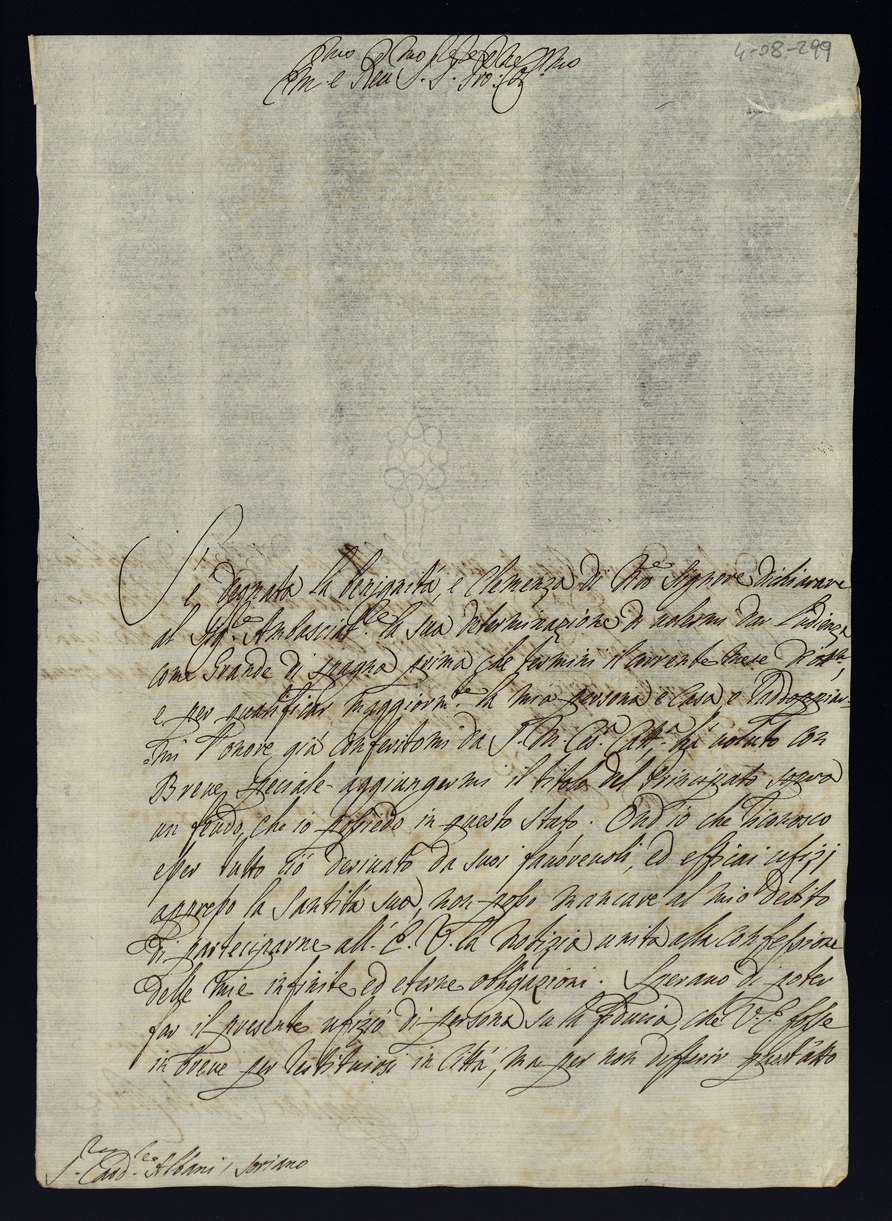 4-08-299
Em.mo e Rev.mo S.r S.r Pro.ne Col.mo
Si è degnata la benignità, e Clemenza di N.ro Signore dichiarare
al Sig.re Ambasciat.re la sua determinazione di volermi dar l'udienza
come Grande di Spagna prima che termini il corrente mese
e per qualificar maggiorm.te la mia persona e Casa e raddoppiar-
mi l'onore già conferitomi da S. M. Ces.a Catt.a hà voluto con
Breve speciale aggiungermi il titolo del Principato sopra
un feudo, che io possiedo in questo stato. Ond'io che riconosco
esser tutto ciò derivato da suoi favorevoli, ed efficaci ufizj
appresso la Santità sua, non posso mancare al mio debito
di participarne all'E. V. la notizia unita alla confessione
delle mie infinite ed eterne obligazioni. Speravo di poter
far il presente ufizio di persona su la fiducia, che V. E. fosse
in breve per restituirsi in Città, ma per non differir quest'atto
S.r Card.le Albani / Soriano